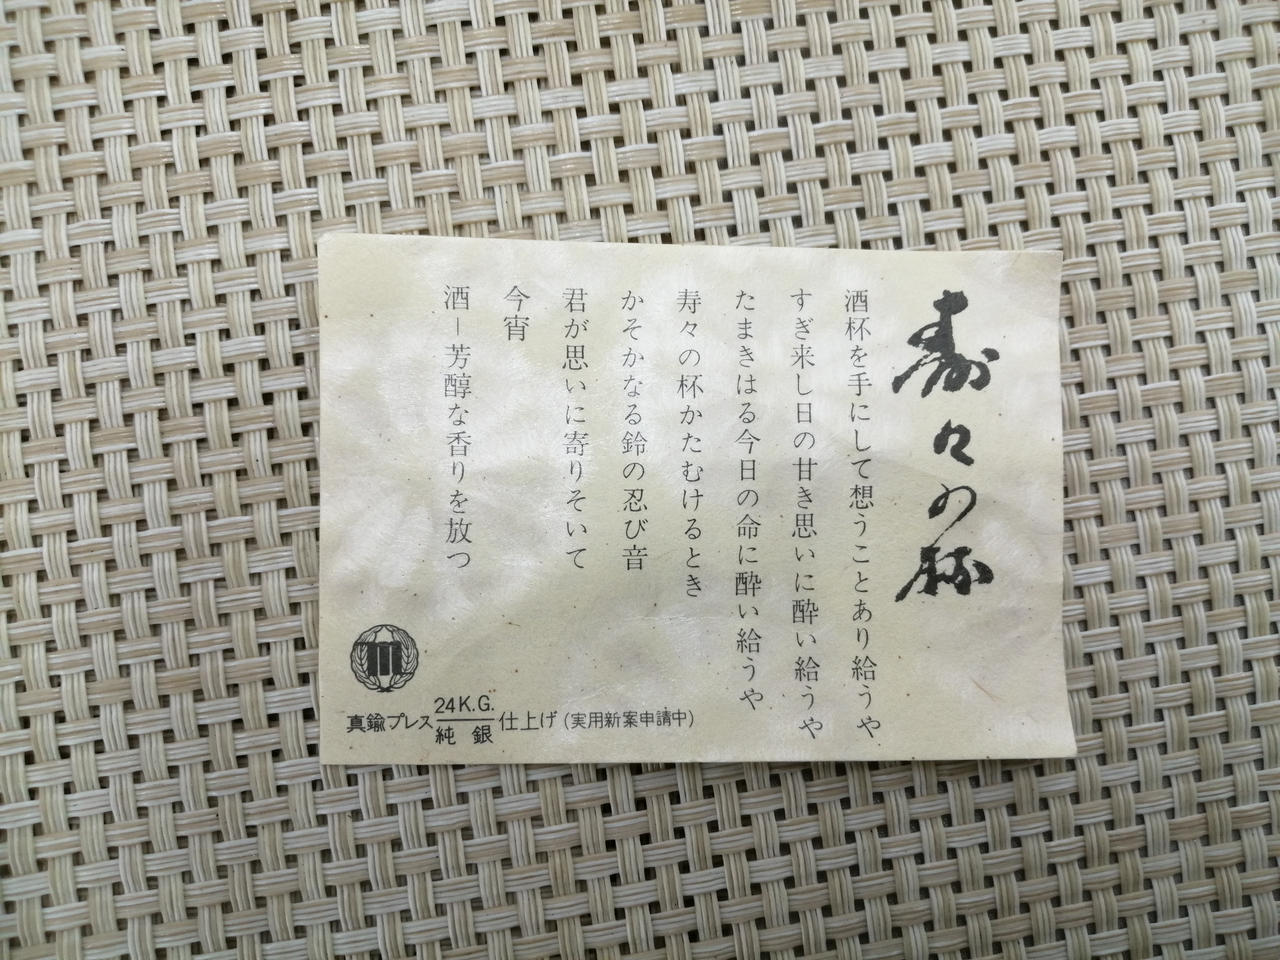 寿々の杯
酒杯を手にして想うことあり給うや
すぎ来し日の甘き思いに酔い給うや
たまきはる今日の命に酔い給うや
寿々の杯かたむけるとき
かそかなる鈴の忍び音
君が思いに寄りそいて
今宵
酒－芳醇な香りを放つ
真鍮プレス24K.G./純銀仕上げ(実用新案申請中)